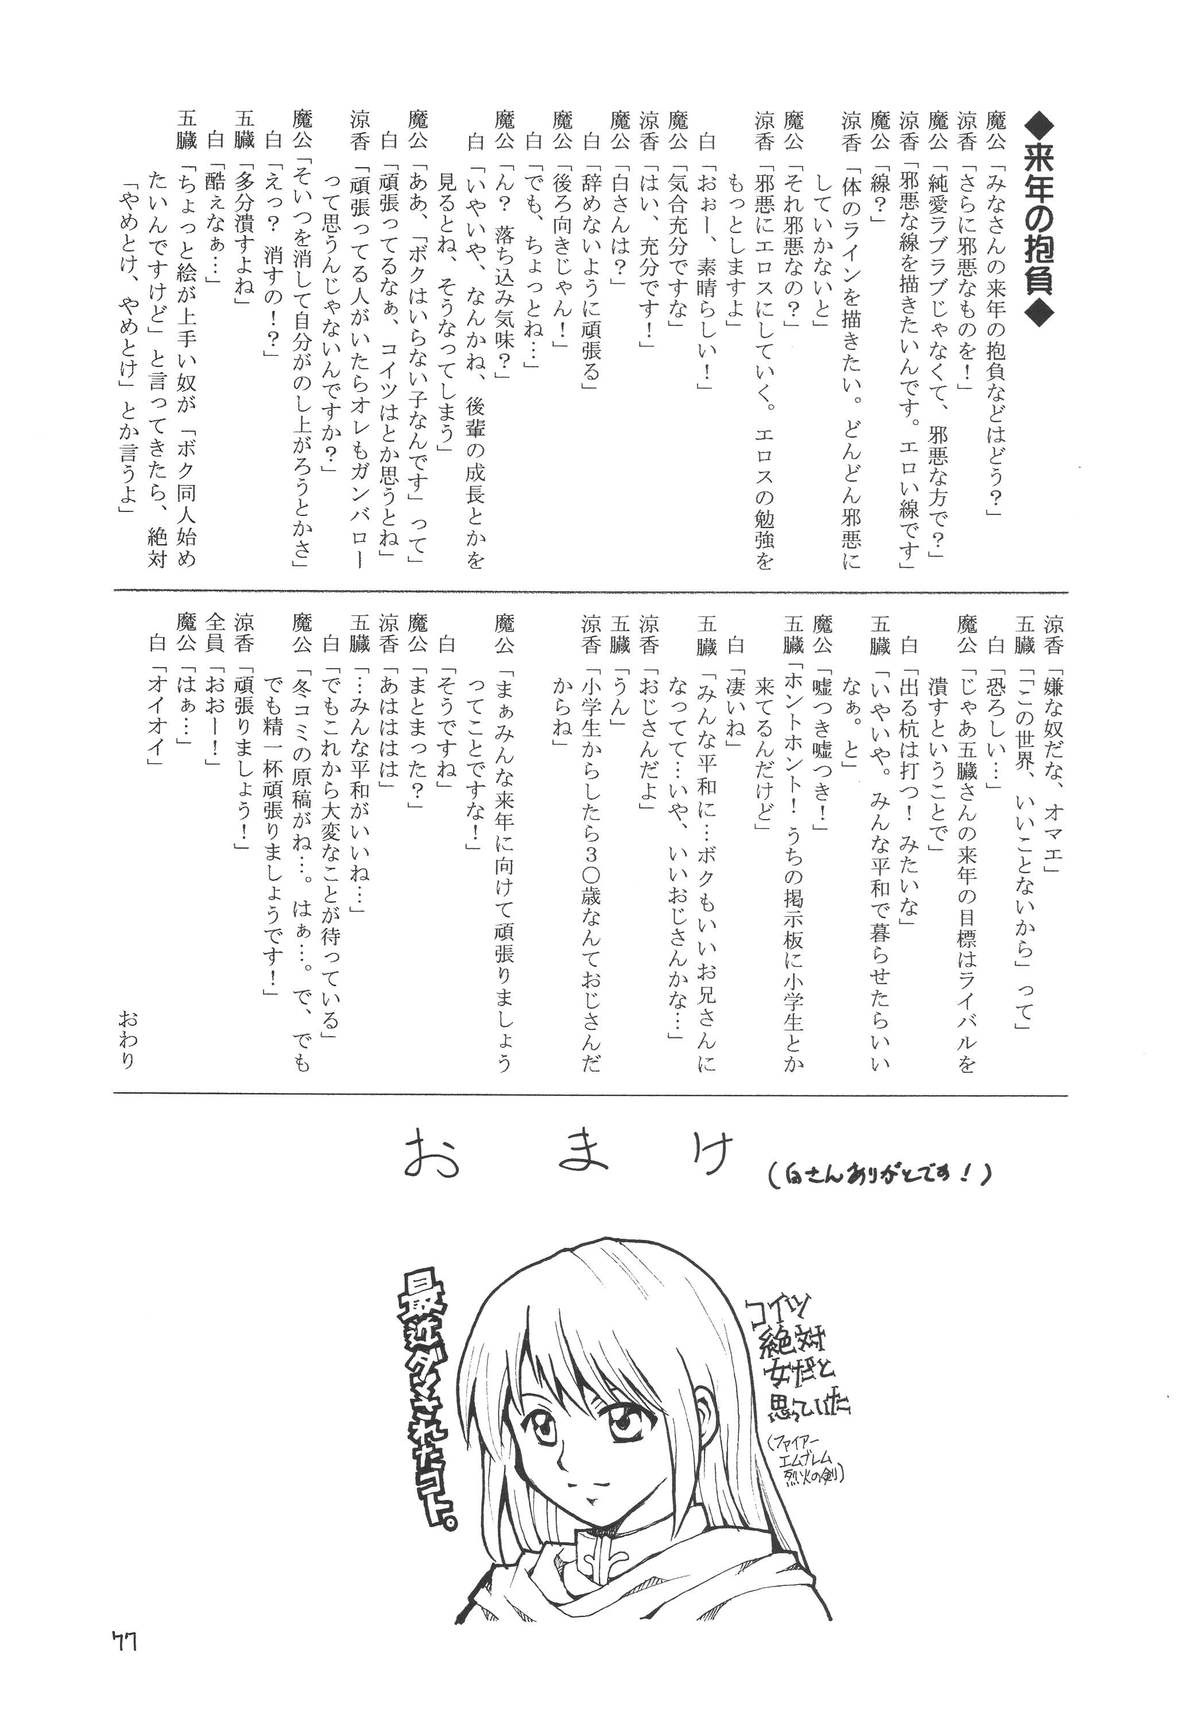 ◆来年の抱負◆
魔公「みなさんの来年の抱負などはどう？」
涼香「さらに邪悪なものを！」
魔公「純愛ラブラブじゃなくて、邪悪な方で？」
涼香「邪悪な線を描きたいんです。エロい線です」
魔公「線？」
涼香「体のラインを描きたい。どんどん邪悪に
していかないと」
魔公「それ邪悪なの？」
涼香「邪悪にエロスにしていく。エロスの勉強を
もっとしますよ」
白「おぉー、素晴らしい！」
魔公「気合充分ですな」
涼香「はい、充分です！」
魔公「白さんは？」
白「辞めないように頑張る」
魔公「後ろ向きじゃん！」
白「でも、ちょっとね…」
魔公「ん？ 落ち込み気味？」
白「いやいや、なんかね、後輩の成長とかを
見るとね、そうなってしまう」
魔公「ああ、「ボクはいらない子なんです」って」
白「頑張ってるなぁ、コイツはとか思うとね」
涼香「頑張ってる人がいたらオレもガンバロー
って思うんじゃないんですか？」
魔公「そいつを消して自分がのし上がろうとかさ」
白「えっ？ 消すの！？」
五臓「多分潰すよね」
白「酷ぇなぁ…」
五臓「ちょっと絵が上手い奴が「ボク同人始め
たいんですけど」と言ってきたら、絶対
「やめとけ、やめとけ」とか言うよ」
涼香「嫌な奴だな、オマエ」
五臓「「この世界、いいことないから」って」
白「恐ろしい…」
魔公「じゃあ五臓さんの来年の目標はライバルを
潰すということで」
白「出る杭は打つ！ みたいな」
五臓「いやいや。みんな平和で暮らせたらいい
なぁ。と」
魔公「嘘つき嘘つき！」
五臓「ホントホント！ うちの掲示板に小学生とか
来てるんだけど」
白「凄いね」
五臓「みんな平和に…ボクもいいお兄さんに
なってて…いや、いいおじさんかな…」
涼香「おじさんだよ」
五臓「うん」
涼香「小学生からしたら３０歳なんておじさんだ
からね」
魔公「まぁみんな来年に向けて頑張りましょう
ってことですな！」
白「そうですね」
魔公「まとまった？」
涼香「あはははは」
五臓「…みんな平和がいいね…」
白「でもこれから大変なことが待っている」
魔公「冬コミの原稿がね…。はぁ…。で、でも
でも精一杯頑張りましょうです！」
涼香「頑張りましょう！」
全員「おおー！」
魔公「はぁ…」
白「オイオイ」
おわり
おまけ
（白さんありがとです！）
コイツ
絶対
女だと
思っていた
（ファイアー
エムブレム
烈火の剣）
最近ダマされたコト。
77